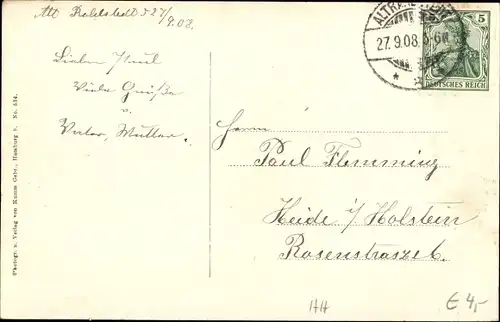 Alt Rahlstedt d 27/9.08.
Lieber Paul
Viele Grüße
v.
Vater, Mutter.
27.9.08. 5-6N
5
DEUTSCHES REICH
Herrn
Paul Flemming
Heide i/Holstein
Rosenstrasze 6.
Photogr. u. Verlag von Knackstedt
HH
€ 4,-